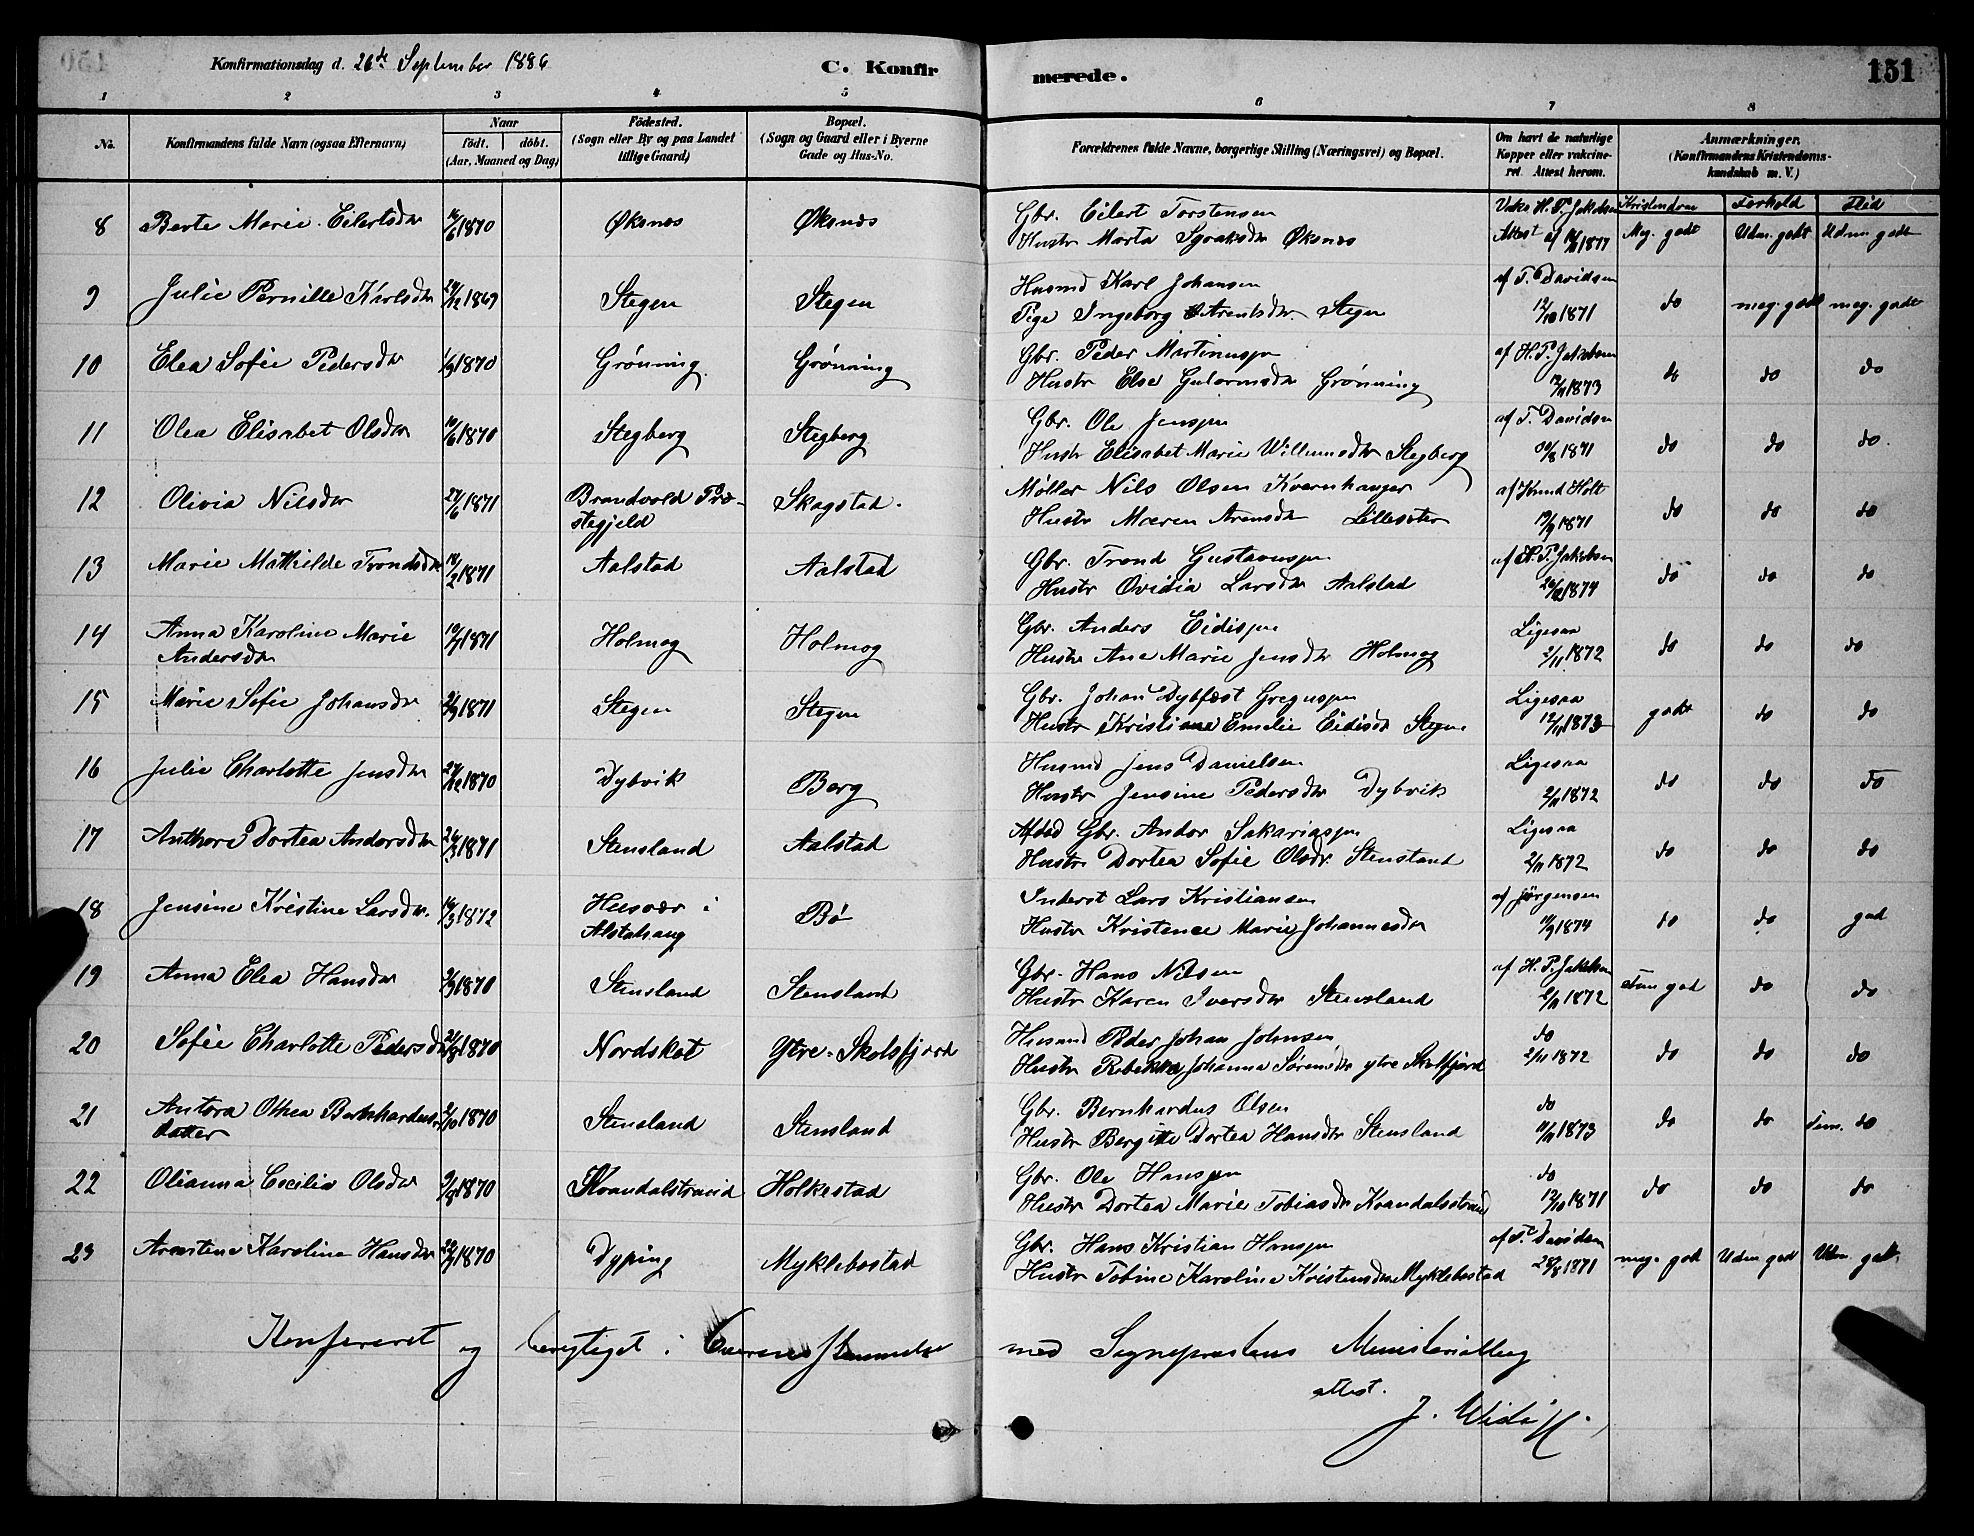 Konfirmationsdag d. 26de September 1886
C. Konfirmerede.
151
1 2 3 4 5 6 7 8
No.
Konfirmandens fulde Navn (ogsaa Efternavn)
Naar
födt. döbt.
(Aar, Maaned og Dag)
Födested.
(Sogn eller By og paa Landet
tillige Gaard)
Bopæl.
(Sogn og Gaard eller i Byerne
Gade og Hus-No.
Forældrenes fulde Navne, borgerlige Stilling (Næringsvei) og Bopæl.
Om havt de naturlige
Kopper eller vakcine-
ret. Attest herom.
Anmærkninger.
(Konfirmandens Kristendoms-
kundskab m. V.)
Kristendom Forhold Flid
8 Berte Marie Eilertsdr 1870 Øksnes Øksnes Gbr. Eilert Torstensen Vaks H. P. Jakobsen
Hustr Marta Øksnes Attest af 1877 Meg. godt Udm. godt Udm. godt
9 Julie Pernille Karlsdr 1869 Stegen Stegen Husmd Karl Johansen af T. Davidsen
Pige Ingeborg Arentsdr. Stegen 12/10 1871 do meg. godt meg. godt
10 Elea Sofie Pedersdr 1870 Grönning Grönning Gbr. Peder Martinussen af H. P. Jakobsen
Hustr Else Grönning 1873 do do do
11 Olea Elisabet Olsdr 1870 Stegberg Stegberg Gbr. Ole Jensen af T. Davidsen
Hustr Elisabet Marie Willumsdr Stegberg 1871 do do do
12 Olivia Nilsdr 1871 Brandvold Præ-
stegjeld Skagstad. Møller Nils Olsen Kvernhanger af Knud Holt
Hustr Maren Arensdr 1871 do do do
13 Marie Mathilde Trondsdr 1871 Aalstad Aalstad Gbr. Trond Gustavussen af H. P. Jakobsen
Hustr Ovidia Larsdr Aalstad 1874 do do do
14 Anna Karoline Marie
Andersdr 1871 Holmog Holmog Gbr. Anders Eidissen Ligesaa
Hustr Ane Marie Jensdr Holmog 2/11 1872 do do do
15 Marie Sofie Johansdr 1871 Stegen Stegen Gbr. Johan Dybfest Gregussen Ligesaa
Hustr Kristiane Emelie Eidisdr Stegen 12/11 1873 godt do do
16 Julie Charlotte Jensdr 1870 Dybvik Borg Husmd Jens Danielsen Ligesaa
Hustr Jensine Pedersdr Dybvik 2/11 1872 do do do
17 Anthore Dortea Andorsdr 1871 Stensland Aalstad Afdød Gbr. Andor Sakariassen Ligesaa
Hustr Dortea Sofie Olsdr. Stensland 2/11 1872 do do do
18 Jensine Kristine Larsdr. 1872 Husvær i
Alstahaug Bö Inderst Lars Kristiansen af Jørgensen
Hustr Kristence Marie Johannesdr 1874 do do god
19 Anna Elea Hansdr 1870 Stensland Stensland Gbr. Hans Nilsen af H. P. Jakobsen
Hustr Karen Iversdr Stensland 2/11 1872 Tem god do do
20 Sofie Charlotte Pedersdr 1870 Nordskot Ytre-Skolsfjord Husmd Peder Johan Johnsen do
Hustr Rebekka Johanna Sørensdr ytre Skolsfjord 2/11 1872 do do do
21 Antora Othea Bernhardus
datter 1870 Stensland Stensland Gbr. Bernhardus Olsen do
Hustr Bergitte Dortea Hansdr Stensland 1873 do do Tem. do
22 Olianna Cecilia Olsdr 1870 Kvandalstrand Holkestad Gbr. Ole Hanssen do
Hustr Dortea Marie Tobiasdr Kvandalsstrand 12/10 1871 do do do
23 Karoline Hansdr 1870 Dyping Myklebostad Gbr. Hans Kristian Hanssen af T. Davidsen
Hustr Tobine Karoline Kristensdr Myklebostad 28/8 1871 meg. god Udm god Udm. godt.
Konfereret og berigtiget i Overensstemmelse med Sogneprestens Ministerialbog
attest.